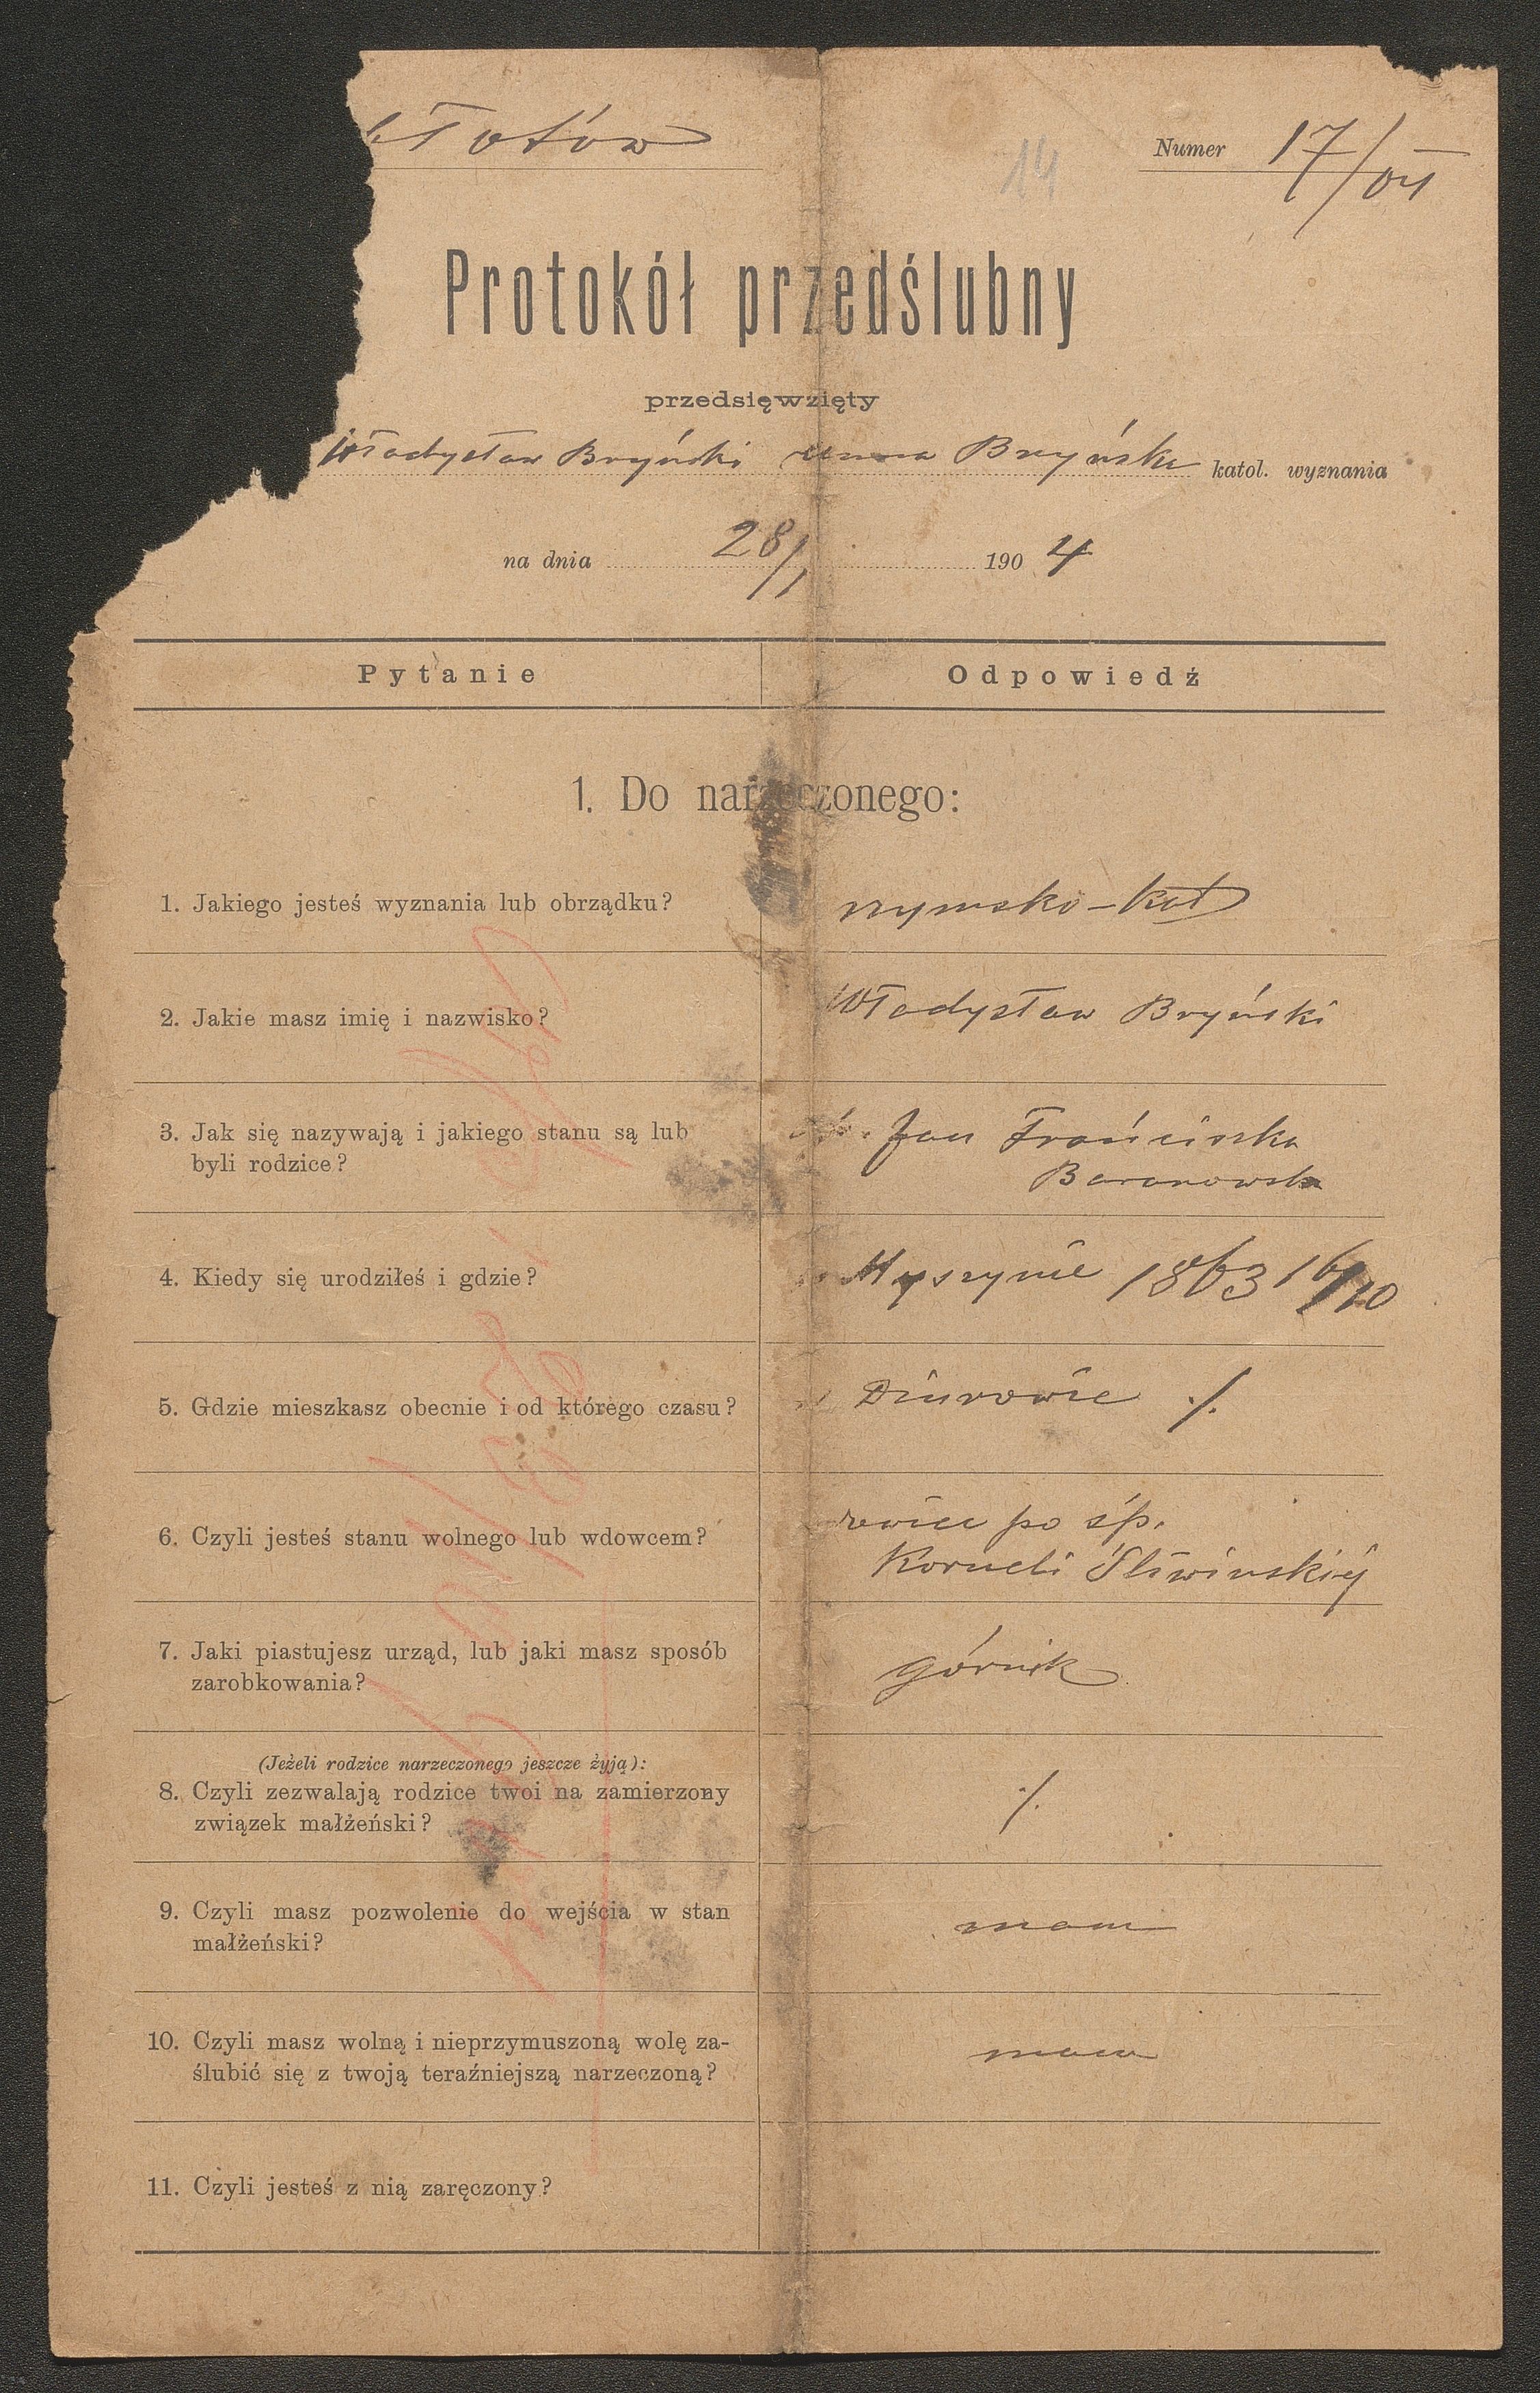 Numer 17/04
14
Protokół przedślubny
przedsięwzięty
Władysław Bryński Anna Bryńska katol. wyznania
na dnia 28/1 1904
Pytanie Odpowiedź
1. Do narzeczonego:
1. Jakiego jesteś wyznania lub obrządku? rzymsko-kat
2. Jakie masz imię i nazwisko? Władysław Bryński
3. Jak się nazywają i jakiego stanu są lub Jan Frańciszka
byli rodzice? Baranowska
4. Kiedy się urodziłeś i gdzie? Myszynie 1863 16/10
5. Gdzie mieszkasz obecnie i od którego czasu? Dżurowie ./.
6. Czyli jesteś stanu wolnego lub wdowcem? po śp.
Korneli Śliwińskiéj
7. Jaki piastujesz urząd, lub jaki masz sposób
zarobkowania? górnik
(Jeżeli rodzice narzeczonego jeszcze żyją):
8. Czyli zezwalają rodzice twoi na zamierzony ./.
związek małżeński?
9. Czyli masz pozwolenie do wejścia w stan mam
małżeński?
10. Czyli masz wolną i nieprzymuszoną wolę za- mam
ślubić się z twoją teraźniejszą narzeczoną?
11. Czyli jesteś z nią zaręczony?